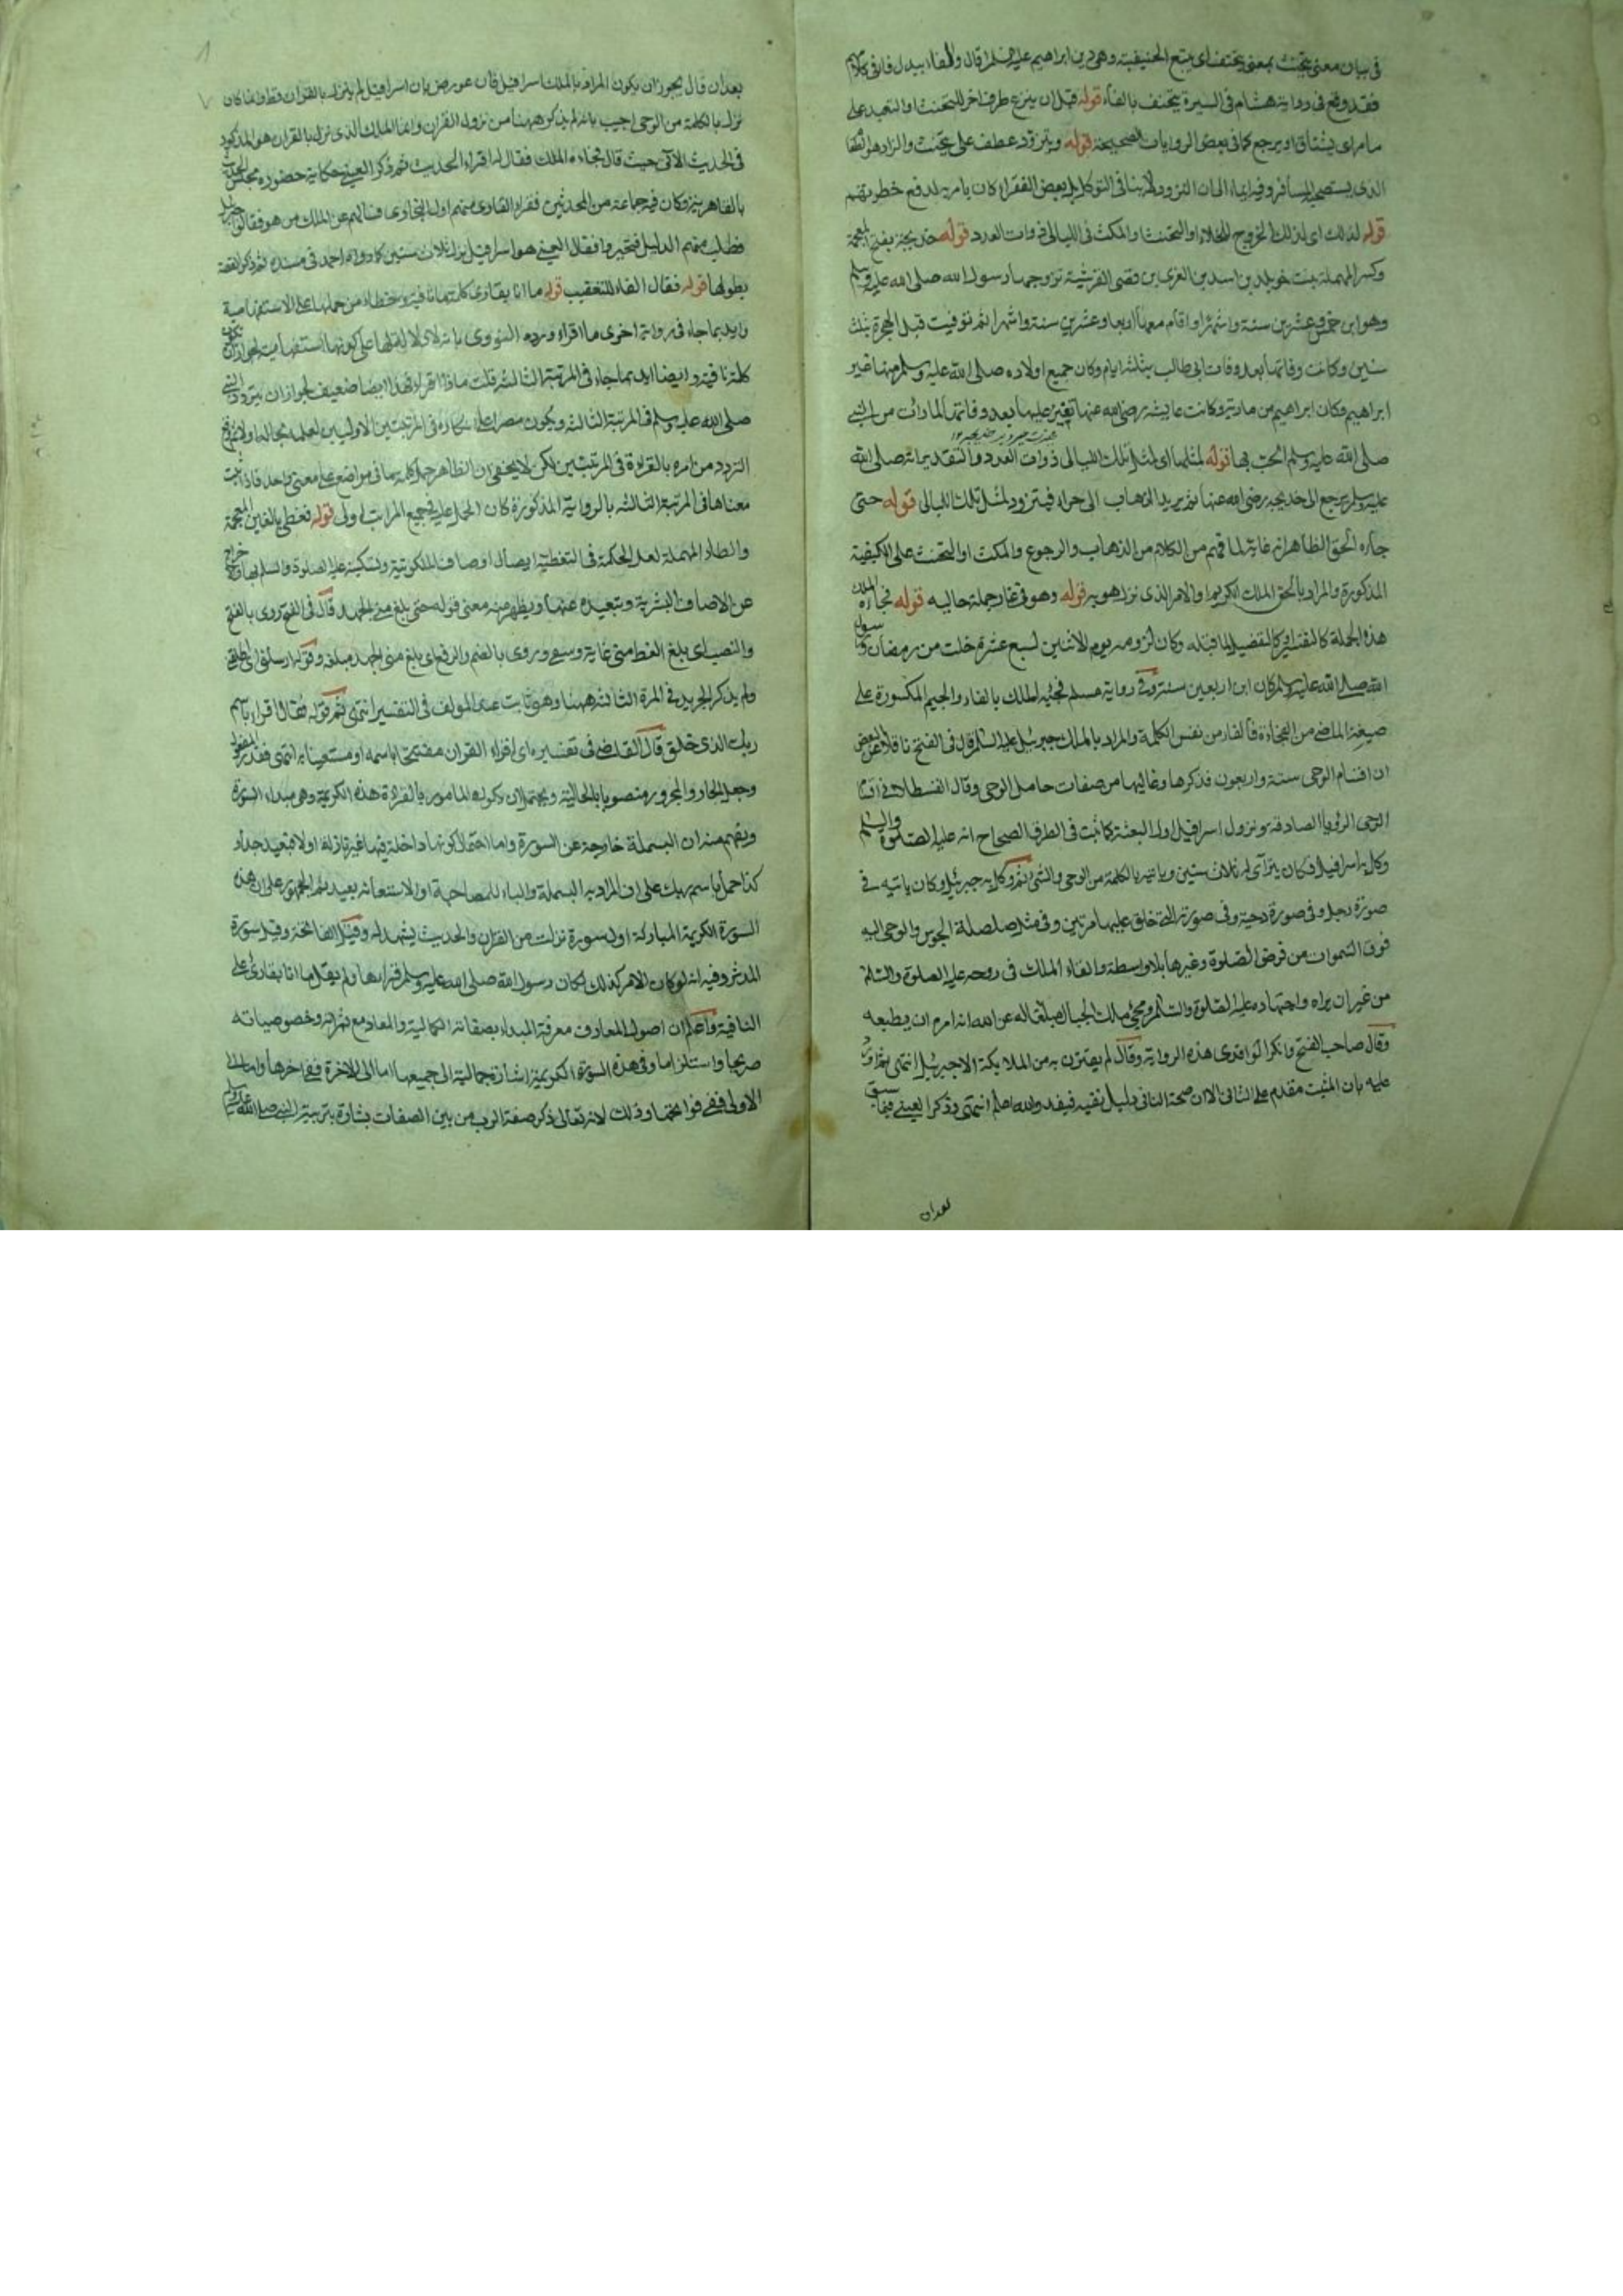 في بيان معنى يتحنث بمعنى يتحنف اى يتبع الحنيفية وهى دين ابراهيم عليه السلام قال والفاء يبدل ثاء فى كلامهم
فقد وقع فى رواية هشام فى السيرة يتحنف بالفاء قوله قبل ان ينزع ظرف اخر للتحنث او التعبد على
ما مر اى يشتاق او يرجع كما فى بعض الروايات الصحيحة قوله ويتزود عطف على يتحنث والزاد هو الطعام
الذى يستصحبه المسافر وفيه ايماء الى ان التزود لا ينافى التوكل بل بعض الفقراء كان يامر به لدفع خطور
قوله لذلك اى لذلك الخروج للخلاء او التحنث او المكث فى الليالى ذوات العدد قوله خديجة بفتح المعجمة
وكسر المهملة بنت خويلد بن اسد بن العزى بن قصى القرشية تزوجها رسول الله صلى الله عليه وسلم
وهو ابن خمس وعشرين سنة واشهرا واقام معها اربعا وعشرين سنة واشهرا ثم توفيت قبل الهجرة بثلث
سنين وكانت وفاتها بعد وفات ابى طالب بثلثة ايام وكان جميع اولاده صلى الله عليه وسلم منها غير
ابراهيم وكان ابراهيم من مارية وكانت عايشة رضى الله عنها تغير عليها بعد وفاتها لما رات من النبى
صلى الله عليه وسلم الحب بها قوله لمثلها اى لمثل تلك الليالى ذوات العدد والتقدير انه صلى الله
عليه وسلم يرجع الى خديجة رضى الله عنها ثم يريد الذهاب الى حراء فيتزود لمثل تلك الليالى قوله حتى
جاءه الحق الظاهر انه غاية لما فهم من الكلام من الذهاب والرجوع والمكث او التحنث على الكيفية
المذكورة والمراد بالحق الملك الكريم او الامر الذى نزل هو به قوله وهو فى غار جملة حالية قوله فجاءه الملك
هذه الجملة كالتفسير كالتفصيل لما قبله وكان نزوله يوم الاثنين لسبع عشرة خلت من رمضان ورسول
الله صلى الله عليه وسلم كان ابن اربعين سنة وفى رواية مسلم فجئه الملك بالفاء والجيم المكسورة على
صيغة الماضى من الفجاءة فالفاء من نفس الكلمة والمراد بالملك جبريل عليه السلام قال فى الفتح ناقلا عن بعض
ان اقسام الوحى ستة واربعون فذكرها وغالبها من صفات حامل الوحى وقال القسطلانى اقسام
الوحى الرؤيا الصادقة ونزول اسرافيل اول البعثة كما ثبت فى الطرق الصحاح انه عليه الصلوة والسلم
وكل به اسرافيل فكان يترآى له ثلاث سنين وياتيه بالكلمة من الوحى والشئ ثم وكل به جبريل وكان ياتيه فى
صورة رجل وفى صورة دحية وفى صورته التى خلق عليها مرتين وفى مثل صلصلة الجرس والوحى اليه
فوق السموات من فرض الصلوة وغيرها بلا واسطة والقاء الملك فى روعه عليه الصلوة والسلم
من غير ان يراه واجتهاده عليه الصلوة والسلم ومجئ ملك الجبال مبلغا له عن الله انه امره ان يطيعه
وقال صاحب الفتح وانكر الواقدى هذه الرواية وقال لم يقترن به من الملايكة الا جبريل انتهى
عليه بان المثبت مقدم على النافى الا ان صحبة النافى دليل نفيه فيقدم والله اعلم انتهى وذكر العينى فيما سبق
بعد ان
بعد ان قال يجوز ان يكون المراد بالملك اسرافيل فان عورض بان اسرافيل لم ينزل بالقران قط وانما كان
نزل بالكلمة من الوحى اجيب بانه لم يذكر ههنا من نزول القران وانما الملك الذى نزل بالقران هو المذكور
فى الحديث الآتى حيث قال فجاءه الملك فقال له اقراء الحديث ثم ذكر العينى حكاية حضوره مجلس الحديث
بالقاهرة وكان فيه جماعة من المحدثين فقراء القارى منهم اول البخارى فسألهم عن الملك من هو فقالوا جبريل
فطلب منهم الدليل فتحيروا فقال العينى هو اسرافيل نزل ثلاث سنين كما رواه احمد فى مسنده ثم ذكر القصة
بطولها قوله فقال الفاء للتعقيب قوله ما انا بقارى كلمة ما نافية من حملها على الاستفهامية
وايد بما جاء فى رواية اخرى ما اقراء ورده النووى بانه لا دلالة لها على كونها استفهامية لجواز ان تكون
كلمة ما فيه وايضا ايد بما جاء فى المرتبة الثالثة قلت ماذا اقراء وهذا ايضا ضعيف لجواز ان يتردد النبى
صلى الله عليه وسلم فى المرتبة الثالثة ويكون مصرا على انكاره فى المرتبتين الاوليين لعلمه بحاله
التردد من امره بالقراءة فى المرتبتين لكن لا يخفى ان الظاهر حمل كلمة ما فى مواضع على معنى واحد فاذا ثبت
معناها فى المرتبة الثالثة بالرواية المذكورة كان الحمل عليه فى جميع المراتب اولى قوله فغطنى بالغين المعجمة
والطاء المهملة لعل الحكمة فى التغطية ايصال اوصاف الملكوتية وتسكينه عليه الصلوة والسلم بها
عن الاوصاف البشرية وتبعيده عنها ويظهر منه معنى قوله حتى بلغ منى الجهد قال فى الفتح روى بالفتح
والنصب اى بلغ الغط منى غاية وسعى وروى بالضم والرفع اى بلغ منى الجهد مبلغه وقوله ارسلنى اى اطلقنى
ولم يذكر الجهد فى المرة الثالثة ههنا وهو ثابت عند المولف فى التفسير انتهى ثم قوله فقال اقراء باسم
ربك الذى خلق قال القاضى فى تفسيره اى اقراء القران مفتتحا باسمه او مستعينا به انتهى فقدر المفعول
وجعل الجار والمجرور منصوبا بالحالية ويحتمل ان يكون المامور بالقراءة هذه الكريمة وهى مبداء السورة
ويفهم منه ان البسملة خارجة عن السورة واما احتمال كونها داخلة فيها غير نازلة اولا فبعيد جدا و
كذا حمل باسم ربك على ان المراد به البسملة والباء للمصاحبة او الاستعانة بعيد ثم الجمهور على ان هذه
السورة الكريمة المباركة اول سورة نزلت من القران والحديث يشهد له وقيل الفاتحة وقيل سورة
المدثر وفيه انه لو كان الامر كذلك لكان رسول الله صلى الله عليه وسلم قراءها ولم يقل ما انا بقارى على
النافية واعلم ان اصول المعارف معرفة المبداء بصفاته الكمالية والمعاد مع ثمراته وخصوصياته
صريحا واستلزاما وفى هذه السورة الكريمة اشارة اجمالية الى جميعها اما الى الاخرة ففى اخرها واما الى
الاولى ففى فواتحها وذلك لانه تعالى ذكر صفة الرب من بين الصفات بشارة بتربيته النبى صلى الله عليه وسلم